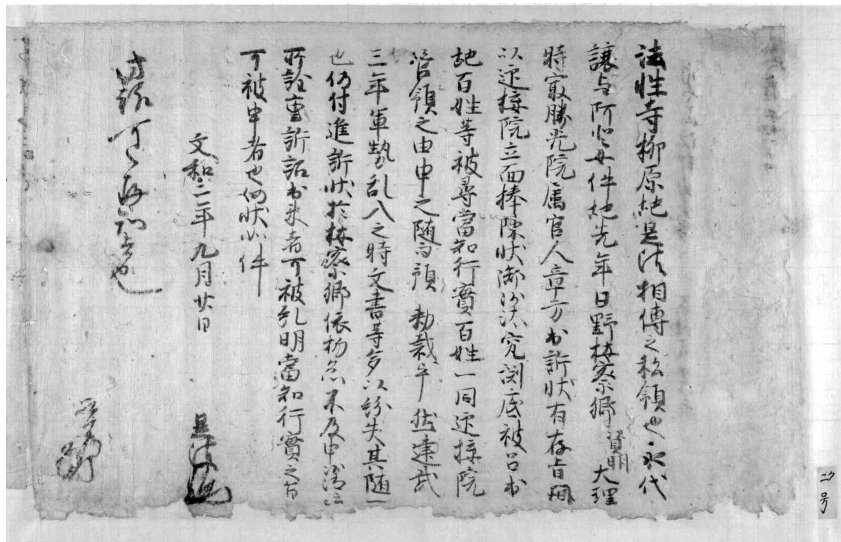 法性寺柳原地是法相傳之私領也永代
讓与阿 女件地先年日野按察卿資明大理
時最勝光院属官人章方出訴状有存旨
以迎接院立面捧陳状御沙汰究渕底被召出
地百姓等被尋當知行實百姓一同迎接院
管領之由申之随而預 勅裁畢然建武
三年軍勢乱入之時文書等多以紛失其随一
也仍付進訴状於按察卿依物忩不及申
所詮重訴訟出来者可被糺明當知行實之旨
可被申者也仍状如件
文和二年九月廿日
是法
可
二ク号